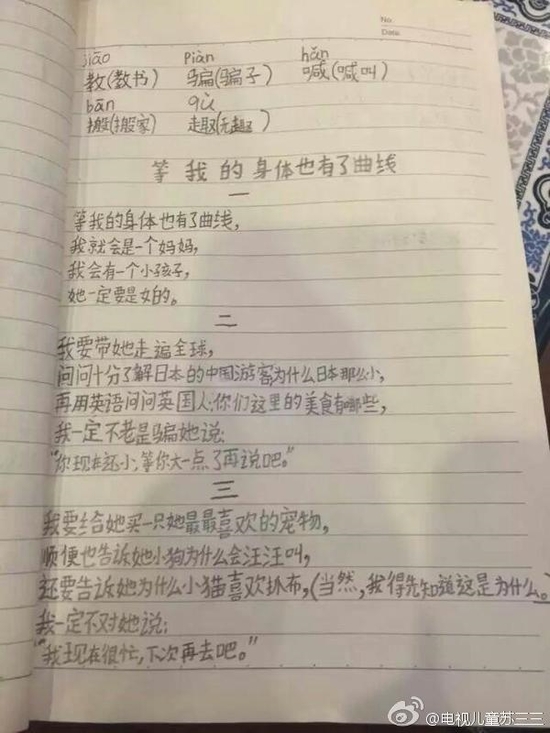 No.
Date
jiāo piàn hǎn
教(教书) 骗(骗子) 喊(喊叫)
bān qù
搬(搬家) 趣(无趣)
等我的身体也有了曲线
一
等我的身体也有了曲线,
我就会是一个妈妈,
我会有一个小孩子,
她一定要是女的。
二
我要带她走遍全球,
问问十分了解日本的中国游客为什么日本那么小,
再用英语问问英国人:你们这里的美食有哪些,
我一定不老是骗她说:
“你现在还小,等你大一点了再说吧。”
三
我要给她买一只她最最喜欢的宠物,
顺便也告诉她小狗为什么会汪汪叫,
还要告诉她为什么小猫喜欢扒布,(当然,我得先知道这是为什么。
我一定不对她说:
“我现在很忙,下次再去吧。”
@电视儿童苏三三